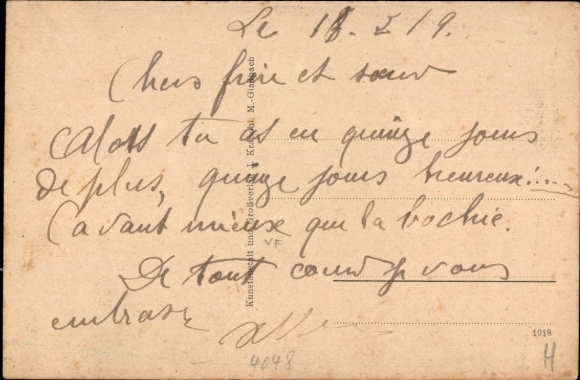 Le 18.2 19.
Chers frère et sœur
Alors tu as eu quinze jours
de plus, quinze jours heureux!....
Ça vaut mieux que la bochie.
De tout cœur je vous
embrasse
Kunstanstalt und Großverlag J. M.-Gladbach
VF
4048
1918
H